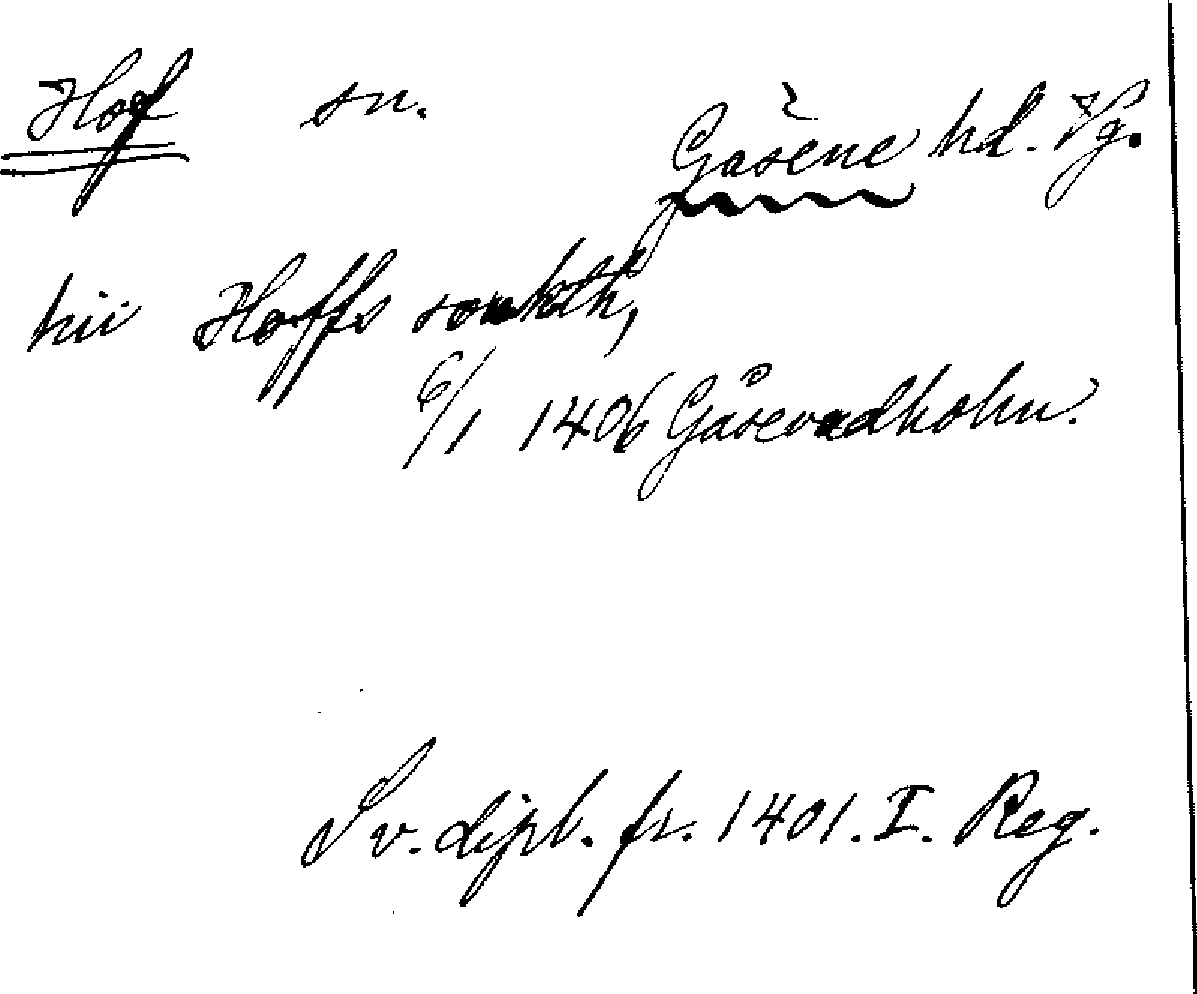 Hof sn. Gäsene hd. Vg.
hii Hoffs soukth,
6/1 1406 Gäsevadholm.
Sv. dipl. fr. 1401. I. Reg.